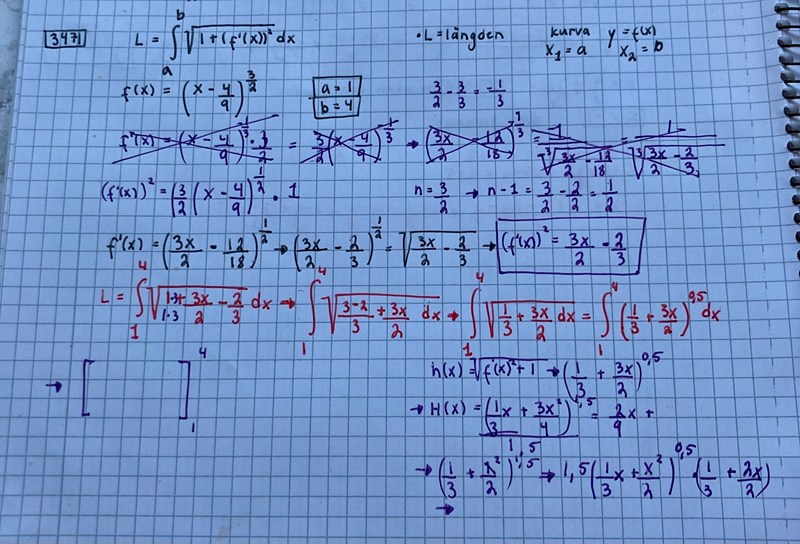 3471 L = ∫_a^b √(1 + (f'(x))² dx • L = längden kurva y = f(x)
x₁ = a x₂ = b
f(x) = (x - 4/9)^(3/2) a = 1 b = 4 3/2 - 3/3 = -1/3
f'(x) = (x - 4/9)^(-1/3) · 3/2 = 3/2 (x - 4/9)^(-1/3) → (3x/2 - 12/18)^(-1/3) = 1/∛(3x/2 - 12/18) = 1/∛(3x/2 - 2/3)
(f'(x))² = (3/2 (x - 4/9)^(1/2) · 1 n = 3/2 → n - 1 = 3/2 - 2/2 = 1/2
f'(x) = (3x/2 - 12/18)^(1/2) → (3x/2 - 2/3)^(1/2) = √(3x/2 - 2/3) → (f'(x))² = 3x/2 - 2/3
L = ∫_1^4 √(1·3/1·3 + 3x/2 - 2/3) dx → ∫_1^4 √((3-2)/3 + 3x/2 dx) → ∫_1^4 √(1/3 + 3x/2 dx) = ∫_1^4 (1/3 + 3x/2)^0,5 dx
h(x) = √(f'(x)² + 1) → (1/3 + 3x/2)^0,5
→ [ ]_1^4
→ H(x) = (1/3 x + 3x²/4)^1,5 / 1,5 = 2/9 x +
→ (1/3 + x²/2)^1,5 → 1,5 (1/3 x + x²/2)^0,5 · (1/3 + 2x/2)
→